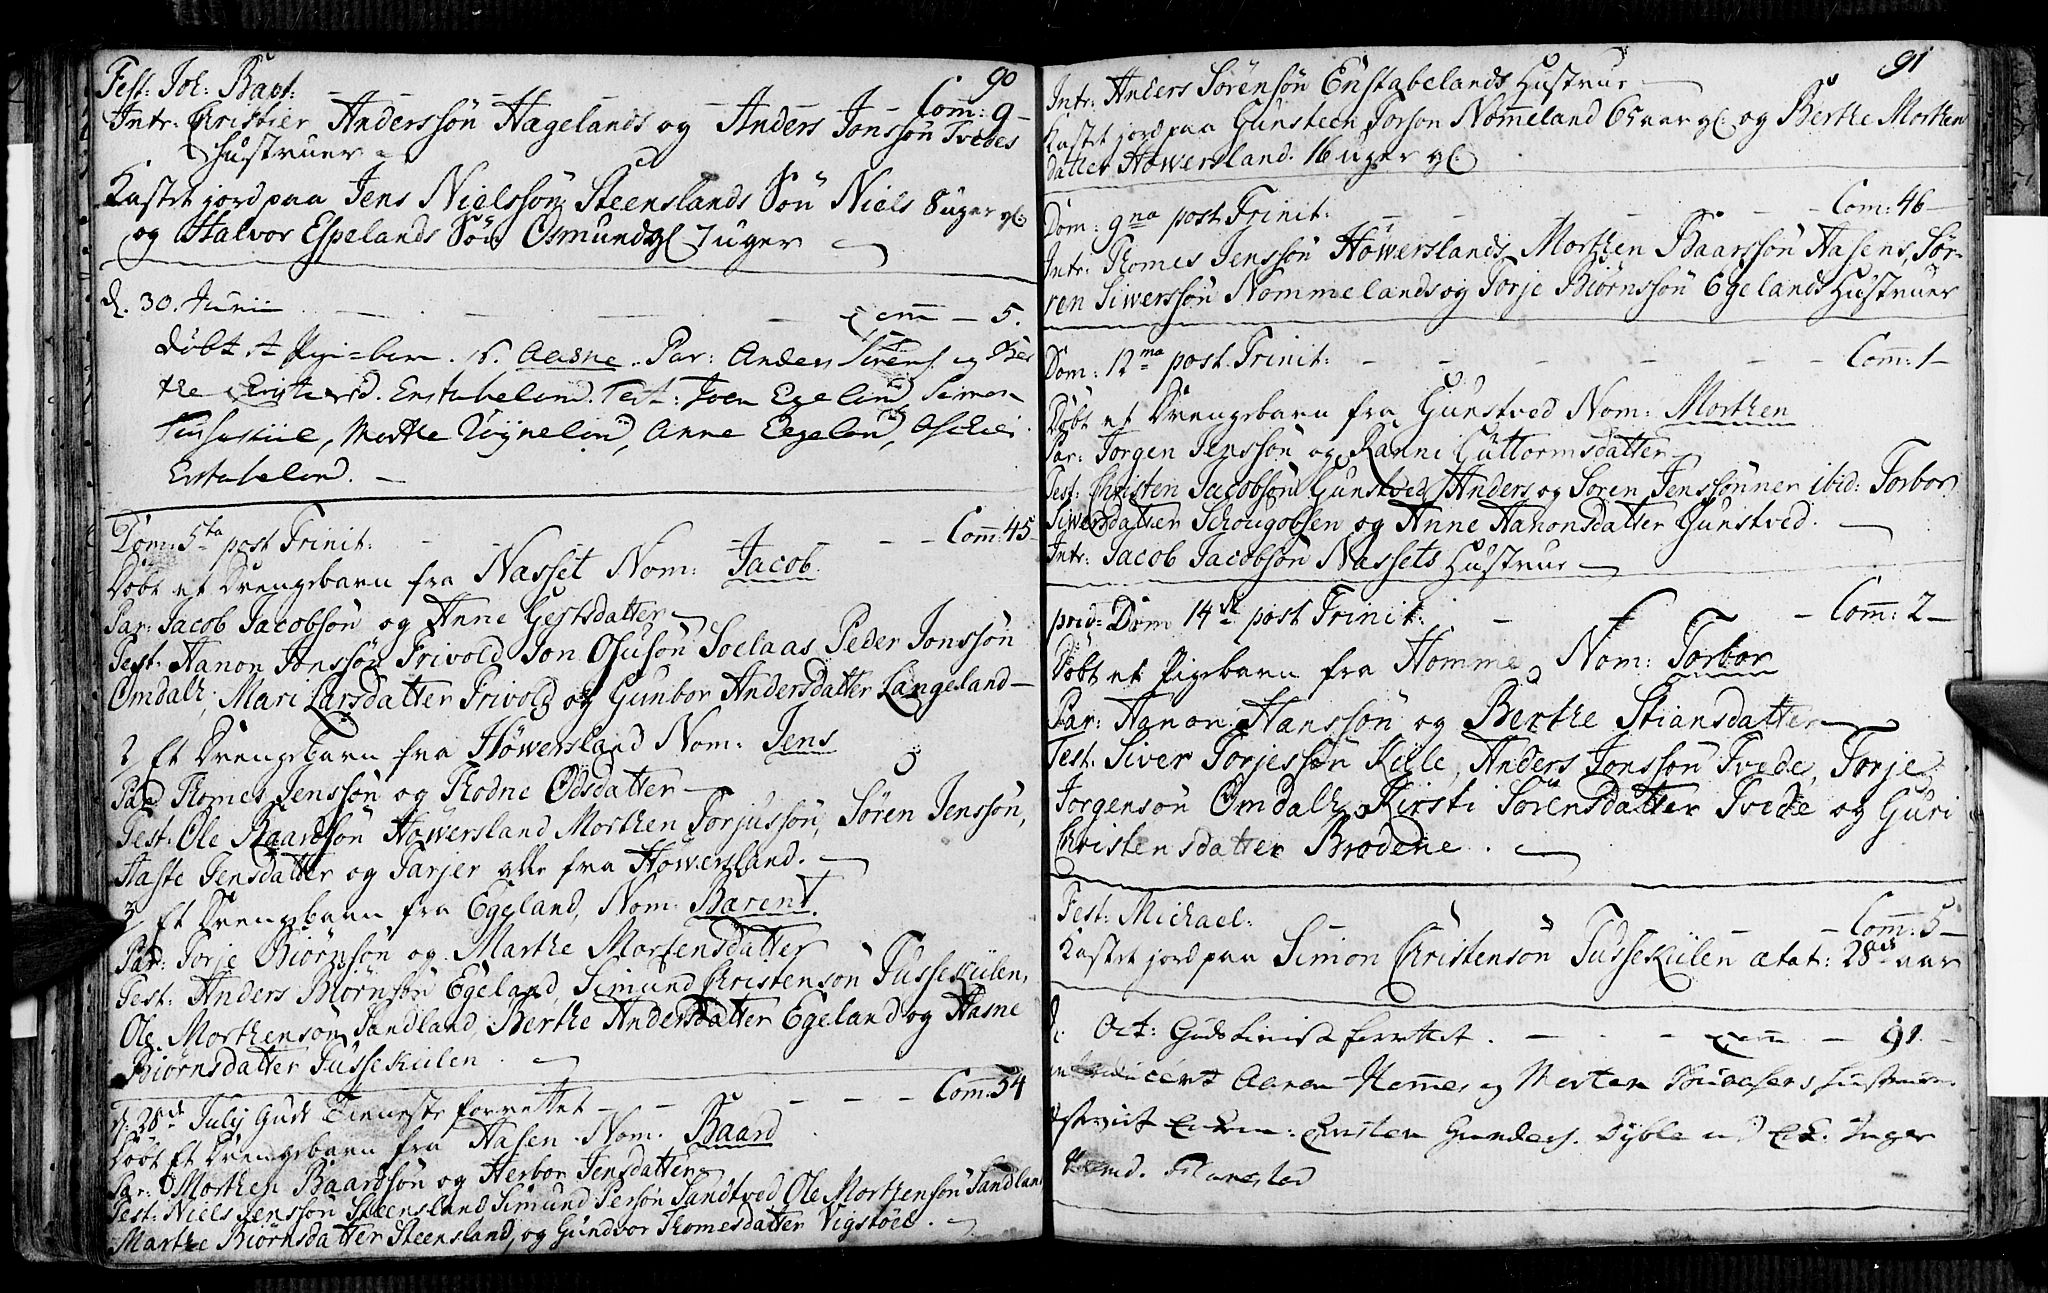 90
Fest: Joh: Bapt: Com: 9
Intr: Christier Anderssön Hagelands og Anders Jonssön Tvedes
Hustruer
Kastet jord paa Jens Nielssön Steenslands Sön Niels 8 uger gl:
og Halvor Espelands Sön Osmund gl 7 uger
d. 30. Junii Com 5.
döbt et Pige-barn. N. Aasne. Par: Anders Sörens. og Ber
the Enstabeland. Test: Joen Egeland, Simon
Tussekiil, Marthe Röyneland, Anne Egeland,
Enstabeland.
Dom: 5ta post Trinit: Com: 45
Döbt et Drengebarn fra Nasset Nom: Jacob.
Par: Jacob Jacobsön og Anne Gestsdatter
Test: Hanon Jonssön Frivold Jon Osusön Soelaas Peder Jonssön
Omdalh, Mari Larsdatter Frivold og Gunbor Andersdatter Langeland
2 Et Drengebarn fra Höwersland Nom: Jens
Par Thomes Jenssön og Thodne Odsdatter
Test: Ole Baardsön Höwersland Morthen Torjussön, Sören Jenssön,
Haste Jensdatter og Tarjer alle fra Höwersland.
3 Et Drengebarn fra Egeland, Nom: Barent.
Par: Torje Biörnsön og Marthe Mortensdatter
Test: Anders Biörnsön Egeland, Simund Christensön Tussekiilen,
Ole Morthensön Sandland, Berthe Andersdatter Egeland og Aasne
Biörnsdatter Tussekiilen
d. 28de July Guds Tieneste forrettet Com: 54
Döbt Et Drengebarn fra Hasen Nom. Baard
Par: Morthen Baardsön og Herbor Jensdatter
Test: Niels Jenssön Steensland Simund Persön Sandtved Ole Morthensön Sandland
Marthe Biörnsdatter Steensland, og Gundvor Thomesdatter Vigstöel.
91
Intr: Anders Sörensön Enstabelands Hustrue
Kastet jord paa Gunsteen Torson Nomeland 65 aar gl: og Berthe Morthen
datter Höwersland. 16 uger gl:
Dom: 9na post Trinit: Com: 46
Intr: Thomes Jenssön Höwerslands, Morthen Baarssön Hasens, Sör-
ren Siwerssön Nommelands og Torje Biörnssön Egelands Hustruer
Dom: 12ma post Trinit: Com: 1
Döbt et Drengebarn fra Gunstved Nom: Morthen
Par: Jörgen Jenssön og Ranni Guttormsdatter
Test: Christen Jacobsön Gunstved, Anders og Sören Jenssönner ibid: Torbor
Siwersdatter Schougobsen og Anne Hanonsdatter Gunstved.
Intr: Jacob Jacobsön Nassets Hustrue
prid: Dom 14de post Trinit: Com: 2
Döbt et Pigebarn fra Homme, Nom: Torbor
Par: Hanon Hanssön og Berthe Stiansdatter
Test: Siver Torjessön Kelle, Anders Jonssön Tvede, Torje
Jorgensön Omdalh, Kirsti Sörensdatter Tvede og Guri
Christensdatter Brodene.
Fest: Michael: Com: 5
Kastet jord paa Simon Christensön Tussekiilen ætat: 28de aar
d: Oct: Guds tieniste forrettet. Com 91.
Aanen Homes og Morten Hustruer
Christen Gunders. Dyble Inger